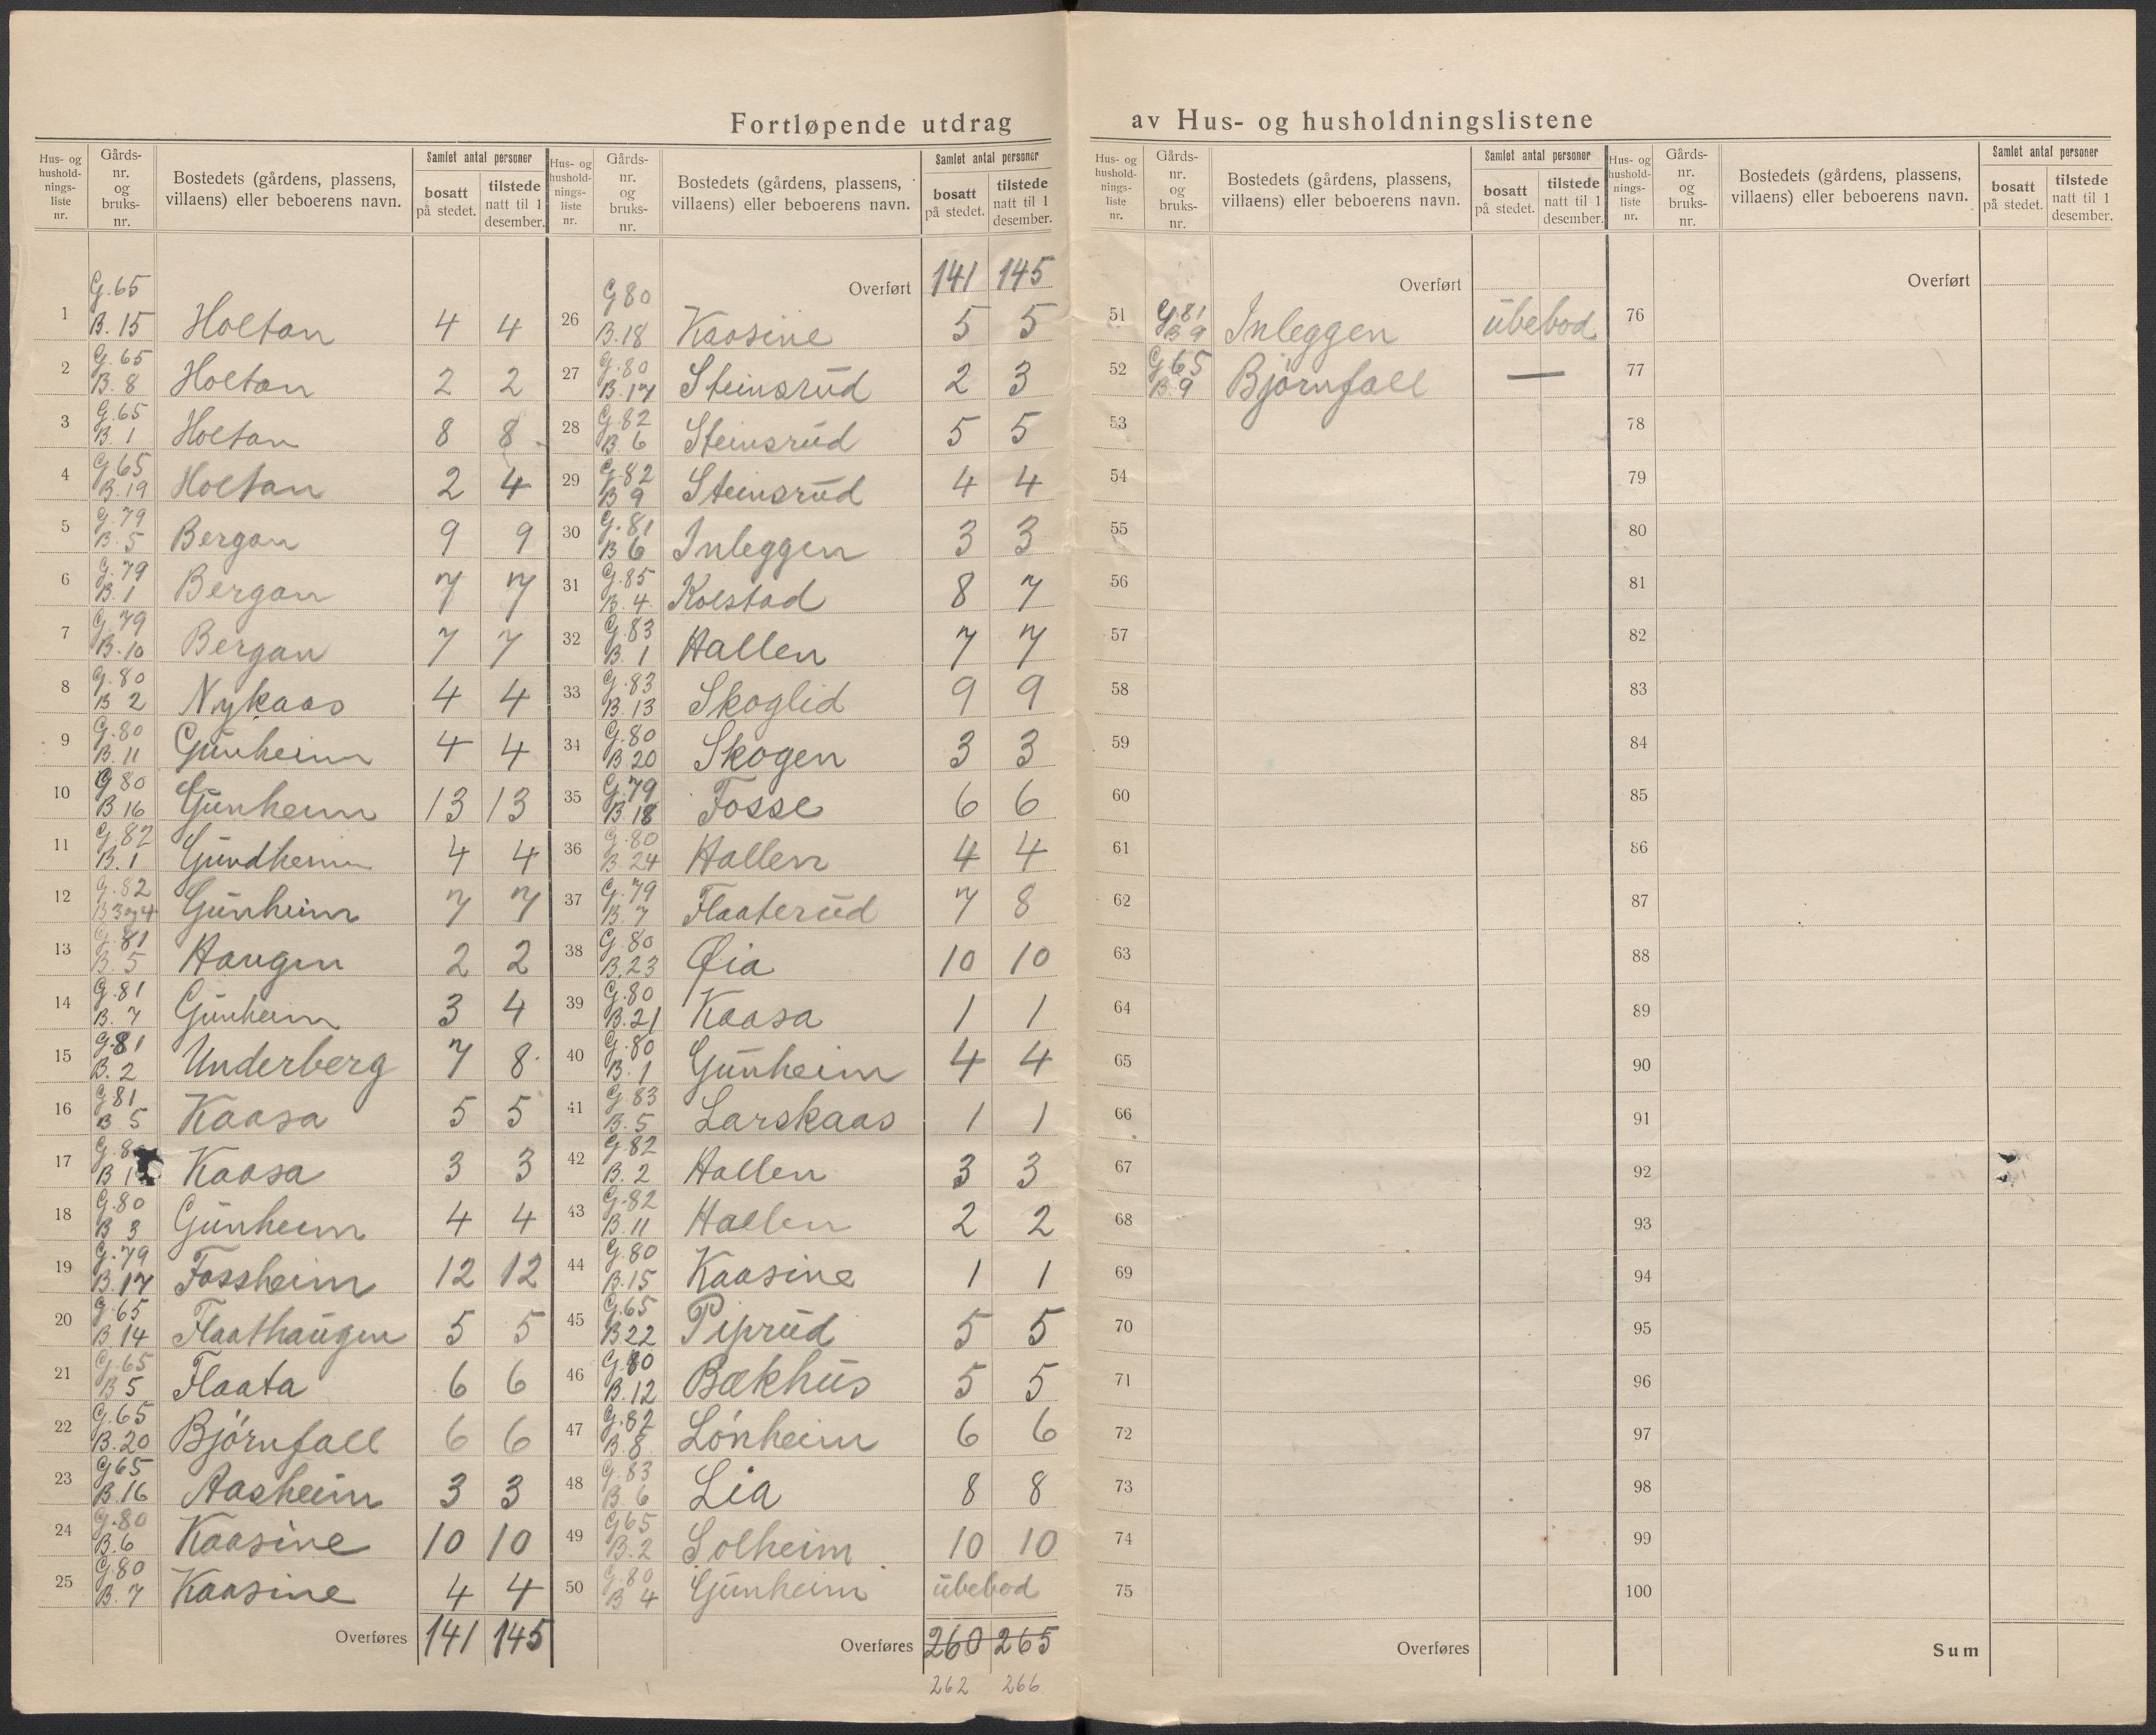 Fortløpende utdrag av Hus- og husholdningslistene
Hus- og husholdnings-liste nr. | Gårds-nr. og bruks-nr. | Bostedets (gårdens, plassens, villaens) eller beboerens navn. | Samlet antal personer: bosatt på stedet. | tilstede natt til 1 desember.
1 G.65 B.15 Holtan 4 4
2 G.65 B.8 Holtan 2 2
3 G.65 B.1 Holtan 8 8
4 G.65 B.19 Holtan 2 4
5 G.79 B.5 Bergan 9 9
6 G.79 B.1 Bergan 7 7
7 G.79 B.10 Bergan 7 7
8 G.80 B 2 Nykaas 4 4
9 G.80 B.11 Gunheim 4 4
10 G 80 B 16 Gunheim 13 13
11 G.82 B.1 Gundheim 4 4
12 G.82 B 3 og 4 Gunheim 7 7
13 G.81 B.5 Haugen 2 2
14 G.81 B.7 Gunheim 3 4
15 G.81 B.2 Underberg 7 8
16 G 81 B 5 Kaasa 5 5
17 G.8 B 1 Kaasa 3 3
18 G.80 B 3 Gunheim 4 4
19 G.79 B.17 Fossheim 12 12
20 G.65 B 14 Flaathaugen 5 5
21 G.65 B 5 Flaata 6 6
22 G.65 B.20 Björnfall 6 6
23 G 65 B.16 Aasheim 3 3
24 G.80 B.6 Kaasine 10 10
25 G.80 B.7 Kaasine 4 4
Overføres 141 145
Hus- og husholdnings-liste nr. | Gårds-nr. og bruks-nr. | Bostedets (gårdens, plassens, villaens) eller beboerens navn. | Samlet antal personer: bosatt på stedet. | tilstede natt til 1 desember.
Overført 141 145
26 G 80 B.18 Kaasine 5 5
27 G.80 B.17 Steinsrud 2 3
28 G.82 B 6 Steinsrud 5 5
29 G.82 B 9 Steinsrud 4 4
30 G.81 B 6 Inleggen 3 3
31 G.85 B.4 Kolstad 8 7
32 G.83 B.1 Hallen 7 7
33 G.83 B.13 Skoglid 9 9
34 G.80 B 20 Skogen 3 3
35 G.79 B.18 Fosse 6 6
36 G.80 B.24 Hallen 4 4
37 G.79 B.7 Flaaterud 7 8
38 G.80 B.23 Øia 10 10
39 G.80 B.21 Kaasa 1 1
40 G.80 B.1 Gunheim 4 4
41 G 83 B.5 Larskaas 1 1
42 G.82 B.2 Hallen 3 3
43 G.82 B.11 Hallen 2 2
44 G.80 B.15 Kaasine 1 1
45 G.65 B 22 Piprud 5 5
46 G.80 B.12 Bækhus 5 5
47 G.82 B.8 Lönheim 6 6
48 G.83 B 6 Lia 8 8
49 G 65 B.2 Solheim 10 10
50 G.80 B 4 Gunheim ubebod
Overføres 260 265
262 266
Hus- og husholdnings-liste nr. | Gårds-nr. og bruks-nr. | Bostedets (gårdens, plassens, villaens) eller beboerens navn. | Samlet antal personer: bosatt på stedet. | tilstede natt til 1 desember.
Overført
51 G.81 B 9 Inleggen ubebod
52 G 65 B.9 Björnfall —
53
54
55
56
57
58
59
60
61
62
63
64
65
66
67
68
69
70
71
72
73
74
75
Overføres
Hus- og husholdnings-liste nr. | Gårds-nr. og bruks-nr. | Bostedets (gårdens, plassens, villaens) eller beboerens navn. | Samlet antal personer: bosatt på stedet. | tilstede natt til 1 desember.
Overført
76
77
78
79
80
81
82
83
84
85
86
87
88
89
90
91
92
93
94
95
96
97
98
99
100
Sum